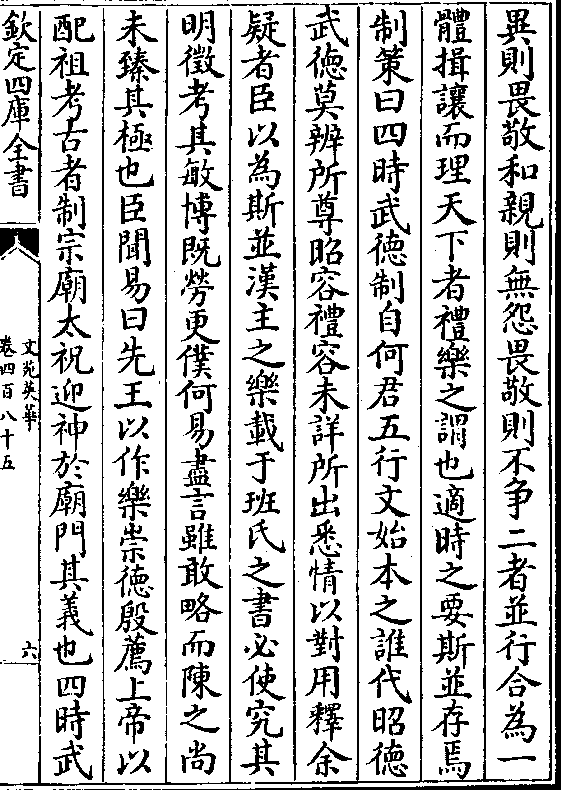 異則畏敬和親則無怨畏敬則不争二者並行合為一
體揖讓而理天下者禮樂之謂也適時之要斯並存焉
制策曰四時武徳制自何君五行文始本之誰代昭徳
武徳莫辨所尊昭容禮容未詳所出悉情以對用釋余
疑者臣以為斯並漢主之樂載于班氏之書必使究其
明徵考其敏博既勞更僕何易盡言雖敢略而陳之尚
未臻其極也臣聞易曰先王以作樂崇徳殷薦上帝以
配祖考古者制宗廟太祝迎神於廟門其義也四時武
欽定四庫全書
文苑英華
卷四百八十五
六